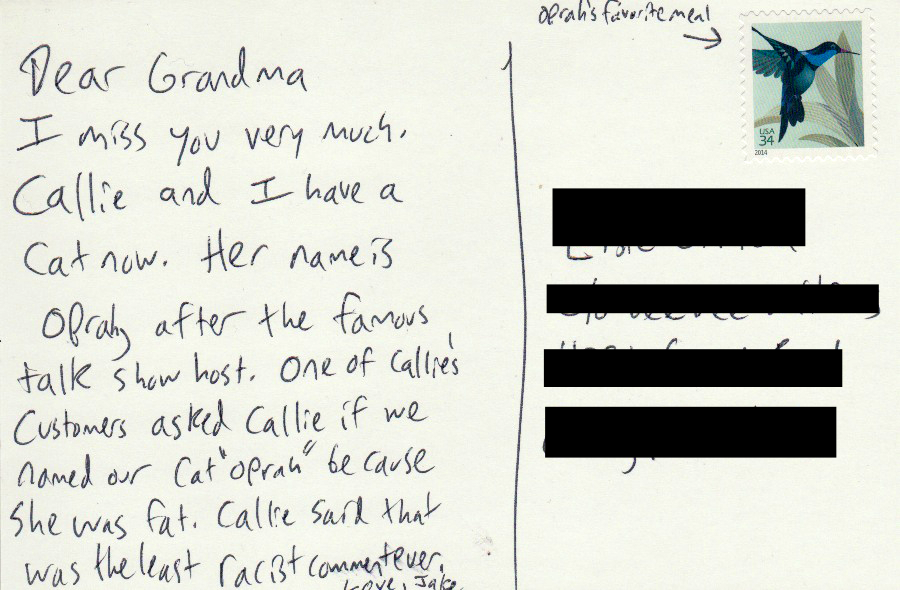 Oprah's favorite meal
USA
34
2014
Dear Grandma
I miss you very much.
Callie and I have a
Cat now. Her name is
Oprah, after the famous
talk show host. One of Callie's
Customers asked Callie if we
named our Cat "Oprah" because
She was fat. Callie said that
was the least racist comment ever.
Love, Jake